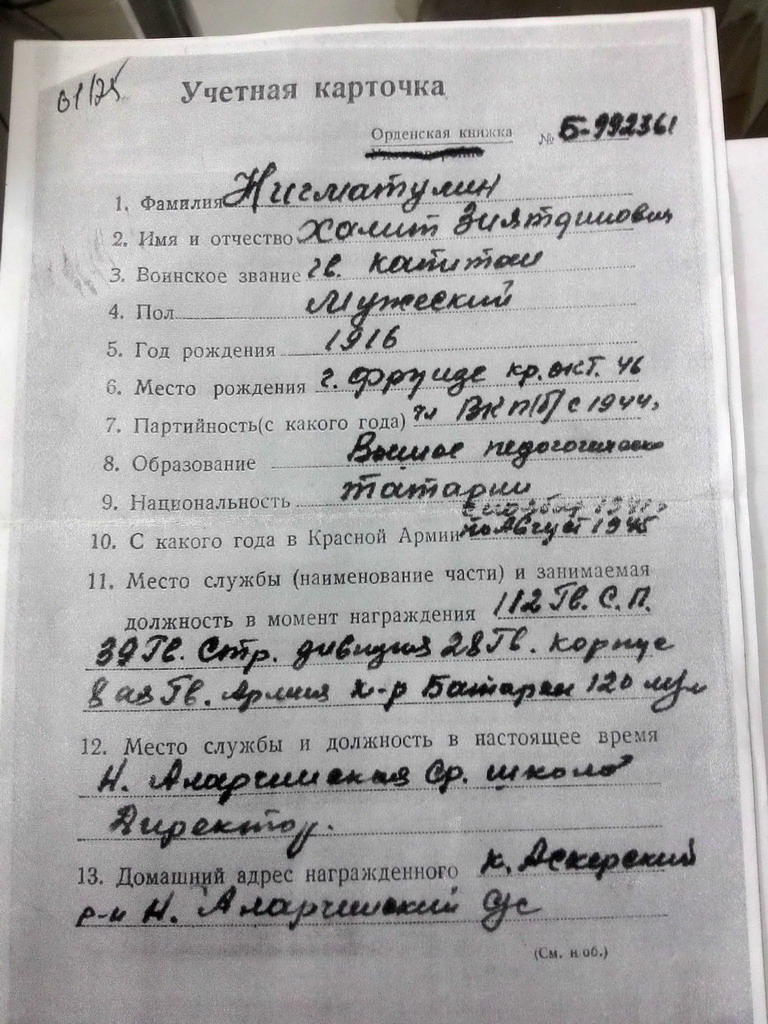 01/25
Учетная карточка
Орденская книжка № Б-992361
1. Фамилия Нигматулин
2. Имя и отчество Халит Зиятдинович
3. Воинское звание гв. капитан
4. Пол Мужеский
5. Год рождения 1916
6. Место рождения г. Фрунзе кр. окт. 46
7. Партийность(с какого года) чл ВКП(б) с 1944г
8. Образование Высшее педагогическое
9. Национальность Татарин
с ноября 1941г
10. С какого года в Красной Армии по Август 1945
11. Место службы (наименование части) и занимаемая
должность в момент награждения 112 Гв. С.П.
39 Гв. Стр. дивизия 28 Гв. корпус
8 ая Гв. Армия к-р Батареи 120 м/м
12. Место службы и должность в настоящее время
Н. Аларчинская Ср. школа
Директор.
13. Домашний адрес награжденного К. Аскерский
р-н Н. Аларчинский с/с
(См. н об.)